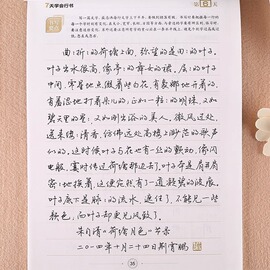 7天学会行书
第6天
曲曲折折的荷塘上面，弥望的是田田的叶子。
叶子出水很高，像亭亭的舞女的裙。层层的叶子中
间，零星地点缀着些白花，有袅娜地开着的，
有羞涩地打着朵儿的；正如一粒粒的明珠，又如
碧天里的星星，又如刚出浴的美人。微风过处，
送来缕缕清香，仿佛远处高楼上渺茫的歌声
似的。这时候叶子与花也有一丝的颤动，像闪
电般，霎时传过荷塘那边去了。叶子本是肩并肩
密密地挨着，这便宛然有了一道凝碧的波痕。
叶子底下是脉脉的流水，遮住了，不能见一些
颜色；而叶子却更见风致了。
朱自清《荷塘月色》节录
二〇一四年十月二十四日荆霄鹏
35